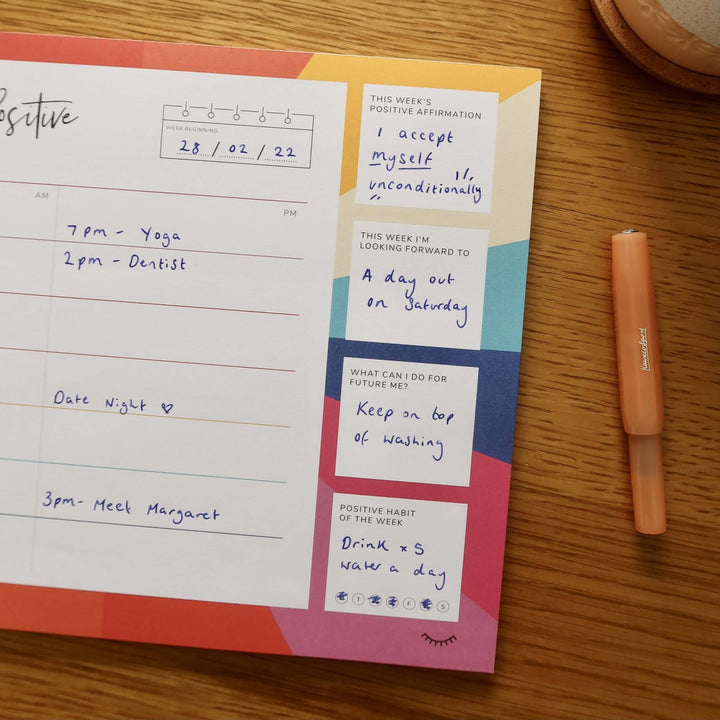 Positive
WEEK BEGINNING
28 / 02 / 22
AM
PM
7pm - Yoga
2pm - Dentist
Date Night ♡
3pm - Meet Margaret
THIS WEEK'S
POSITIVE AFFIRMATION
I accept
myself
unconditionally
THIS WEEK I'M
LOOKING FORWARD TO
A day out
on Saturday
WHAT CAN I DO FOR
FUTURE ME?
Keep on top
of washing
POSITIVE HABIT
OF THE WEEK
Drink x 5
water a day
T F S
Kaweco Sport